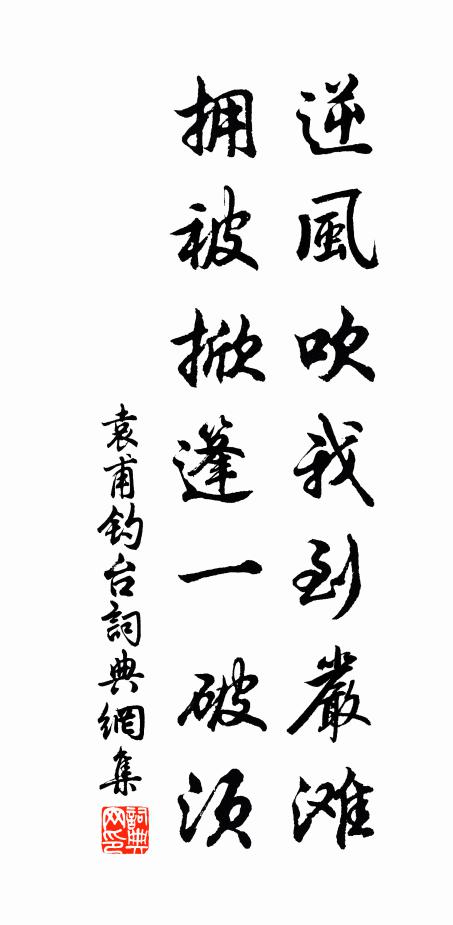 逆風吹我到嚴滩
拥被掀篷一破湏
袁甫钓台詞典網集
詞典
网印